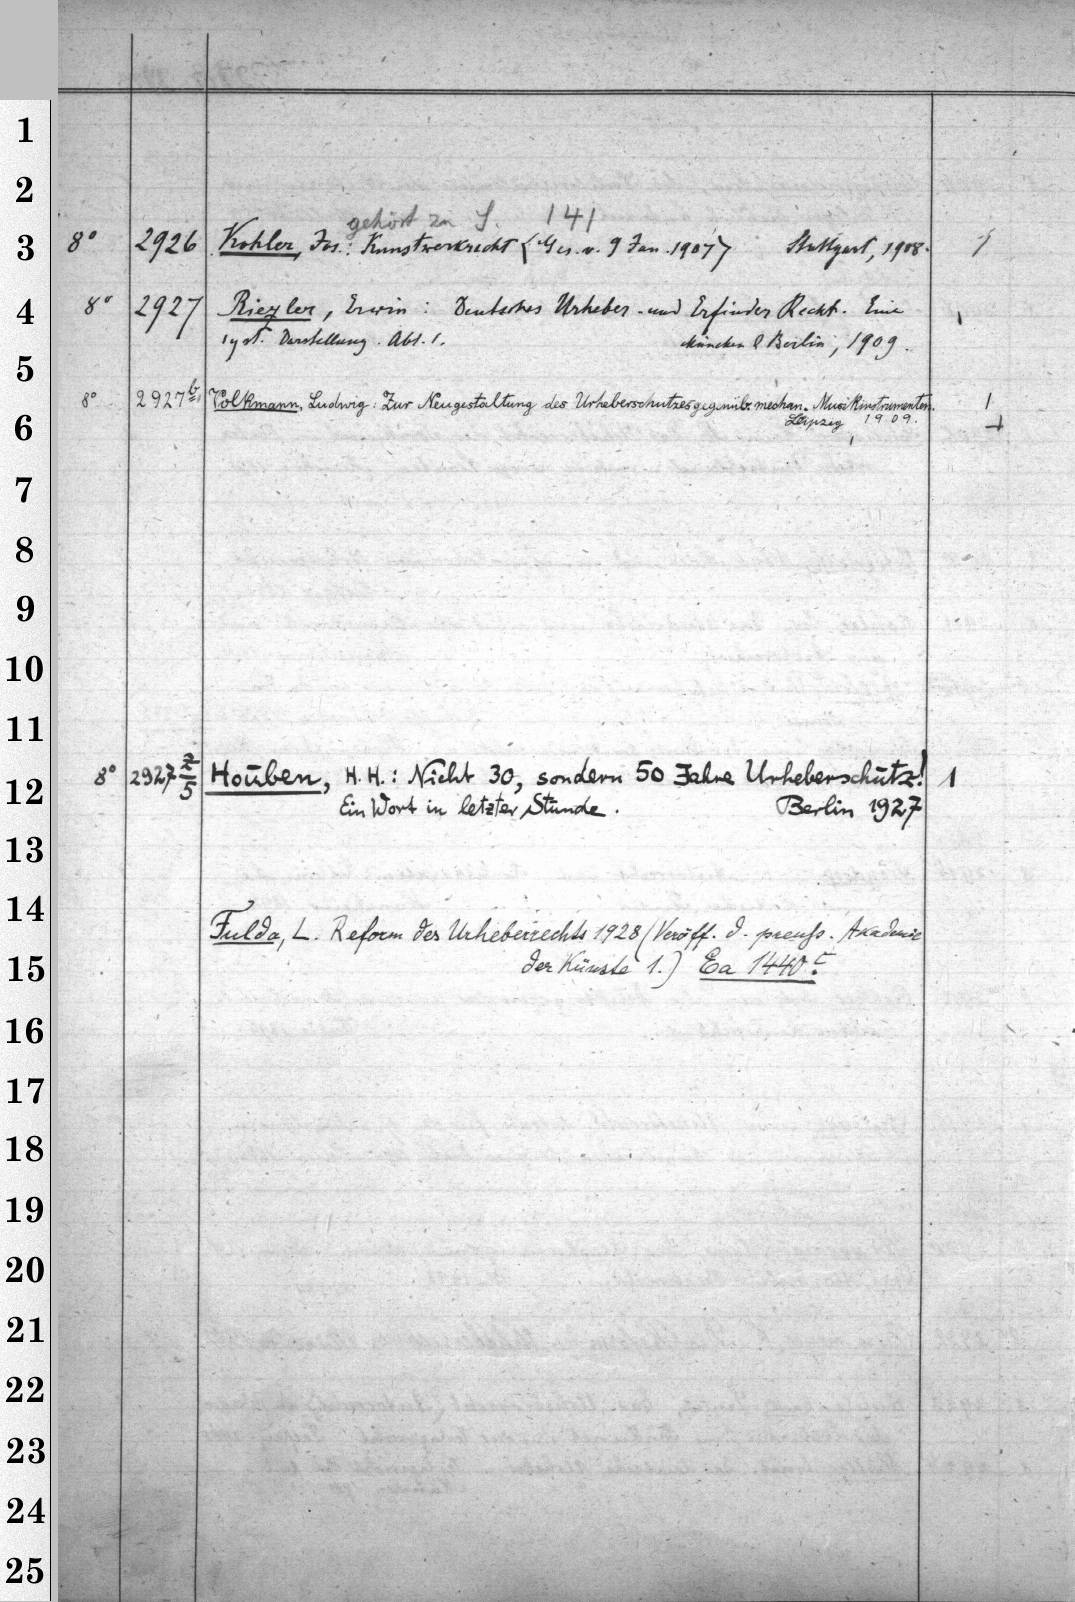 1
2
gehört zu S. 141
3 8° 2926 Kohler, Jos.: Kunstwerkrecht (Ges. v. 9 Jan. 1907) Stuttgart, 1908. 1
4 8° 2927 Riezler, Erwin: Deutsches Urheber- und Erfinder Recht. Eine 1
syst. Darstellung. Abt. 1. München & Berlin, 1909.
5
8° 2927 b Volkmann, Ludwig: Zur Neugestaltung des Urheberschutzes gegenüb. mechan. Musikinstrumenten. 1
6 Leipzig, 1909.
7
8
9
10
11
8° 2927 z/5 Houben, H. H.: Nicht 30, sondern 50 Jahre Urheberschutz! 1
12 Ein Wort in letzter Stunde. Berlin 1927
13
14
Fulda, L. Reform des Urheberrechts 1928 (Veröff. d. preuß. Akademie
15 der Künste 1.) Ea 1440 c
16
17
18
19
20
21
22
23
24
25